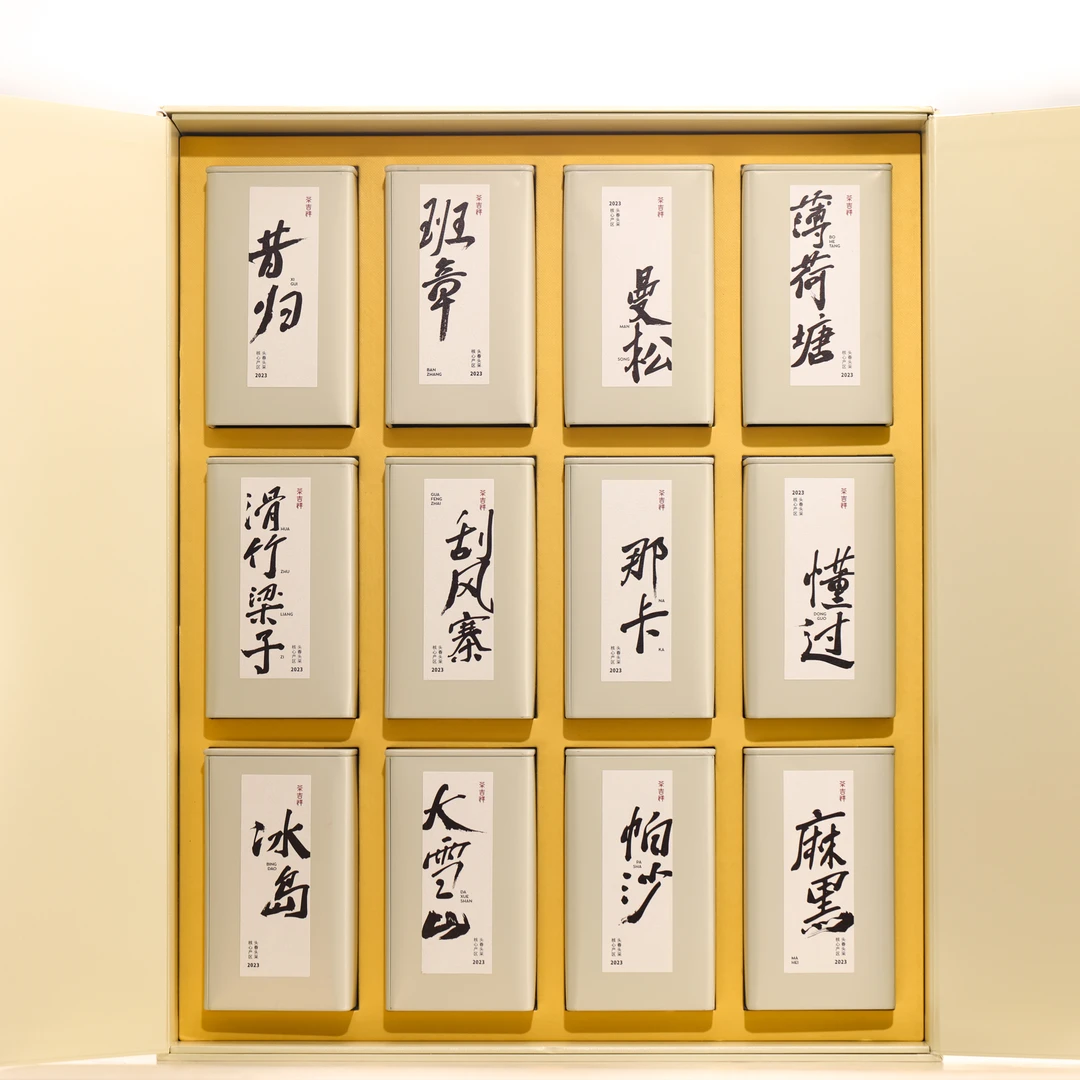 茶吉祥
昔归
XI
GUI
头春头采
核心产区
2023
茶吉祥
班章
BAN
ZHANG
头春头采
核心产区
2023
2023
头春头采
核心产区
茶吉祥
曼松
MAN
SONG
茶吉祥
薄荷塘
BO
HE
TANG
头春头采
核心产区
2023
茶吉祥
滑竹梁子
HUA
ZHU
LIANG
ZI
头春头采
核心产区
2023
GUA
FENG
ZHAI
茶吉祥
刮风寨
头春头采
核心产区
2023
茶吉祥
那卡
NA
KA
头春头采
核心产区
2023
2023
头春头采
核心产区
茶吉祥
懂过
DONG
GUO
茶吉祥
冰岛
BING
DAO
头春头采
核心产区
2023
茶吉祥
大雪山
DA
XUE
SHAN
头春头采
核心产区
2023
茶吉祥
帕沙
PA
SHA
头春头采
核心产区
2023
茶吉祥
麻黑
MA
HEI
头春头采
核心产区
2023